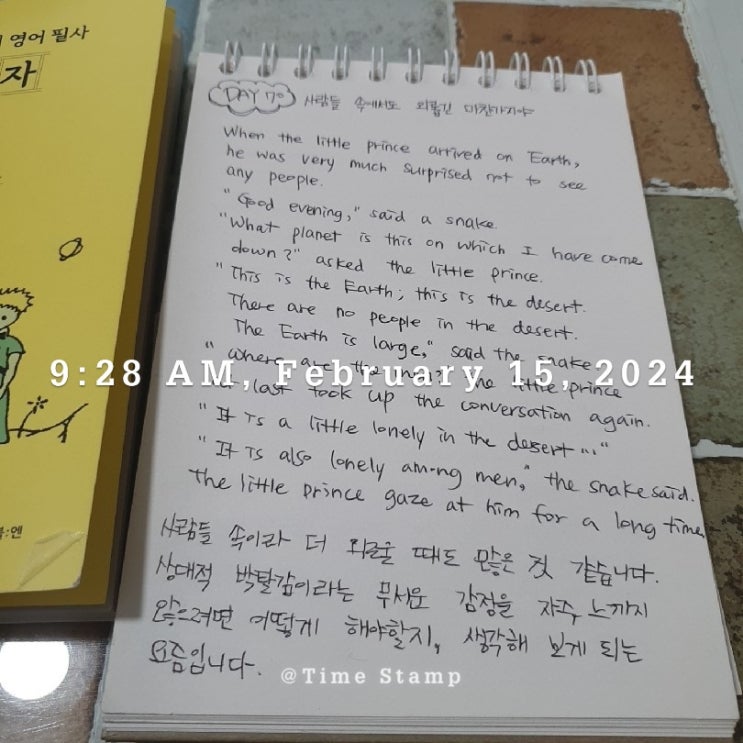 영어 필사
자
DAY 70 사람들 속에서도 외롭긴 마찬가지야
When the little prince arrived on Earth,
he was very much surprised not to see
any people.
"Good evening," said a snake.
"What planet is this on which I have come
down?" asked the little prince.
"This is the Earth; this is the desert.
There are no people in the desert.
The Earth is large," said the snake.
"Where are the men?" the little prince
9:28 AM, February 15, 2024
at last took up the conversation again.
"It is a little lonely in the desert..."
"It is also lonely among men," the snake said.
The little prince gaze at him for a long time.
사람들 속이라 더 외로울 때도 많은 것 같습니다.
상대적 박탈감이라는 무서운 감정을 자주 느끼지
않으려면 어떻게 해야할지, 생각해 보게 되는
요즘입니다.
@Time Stamp